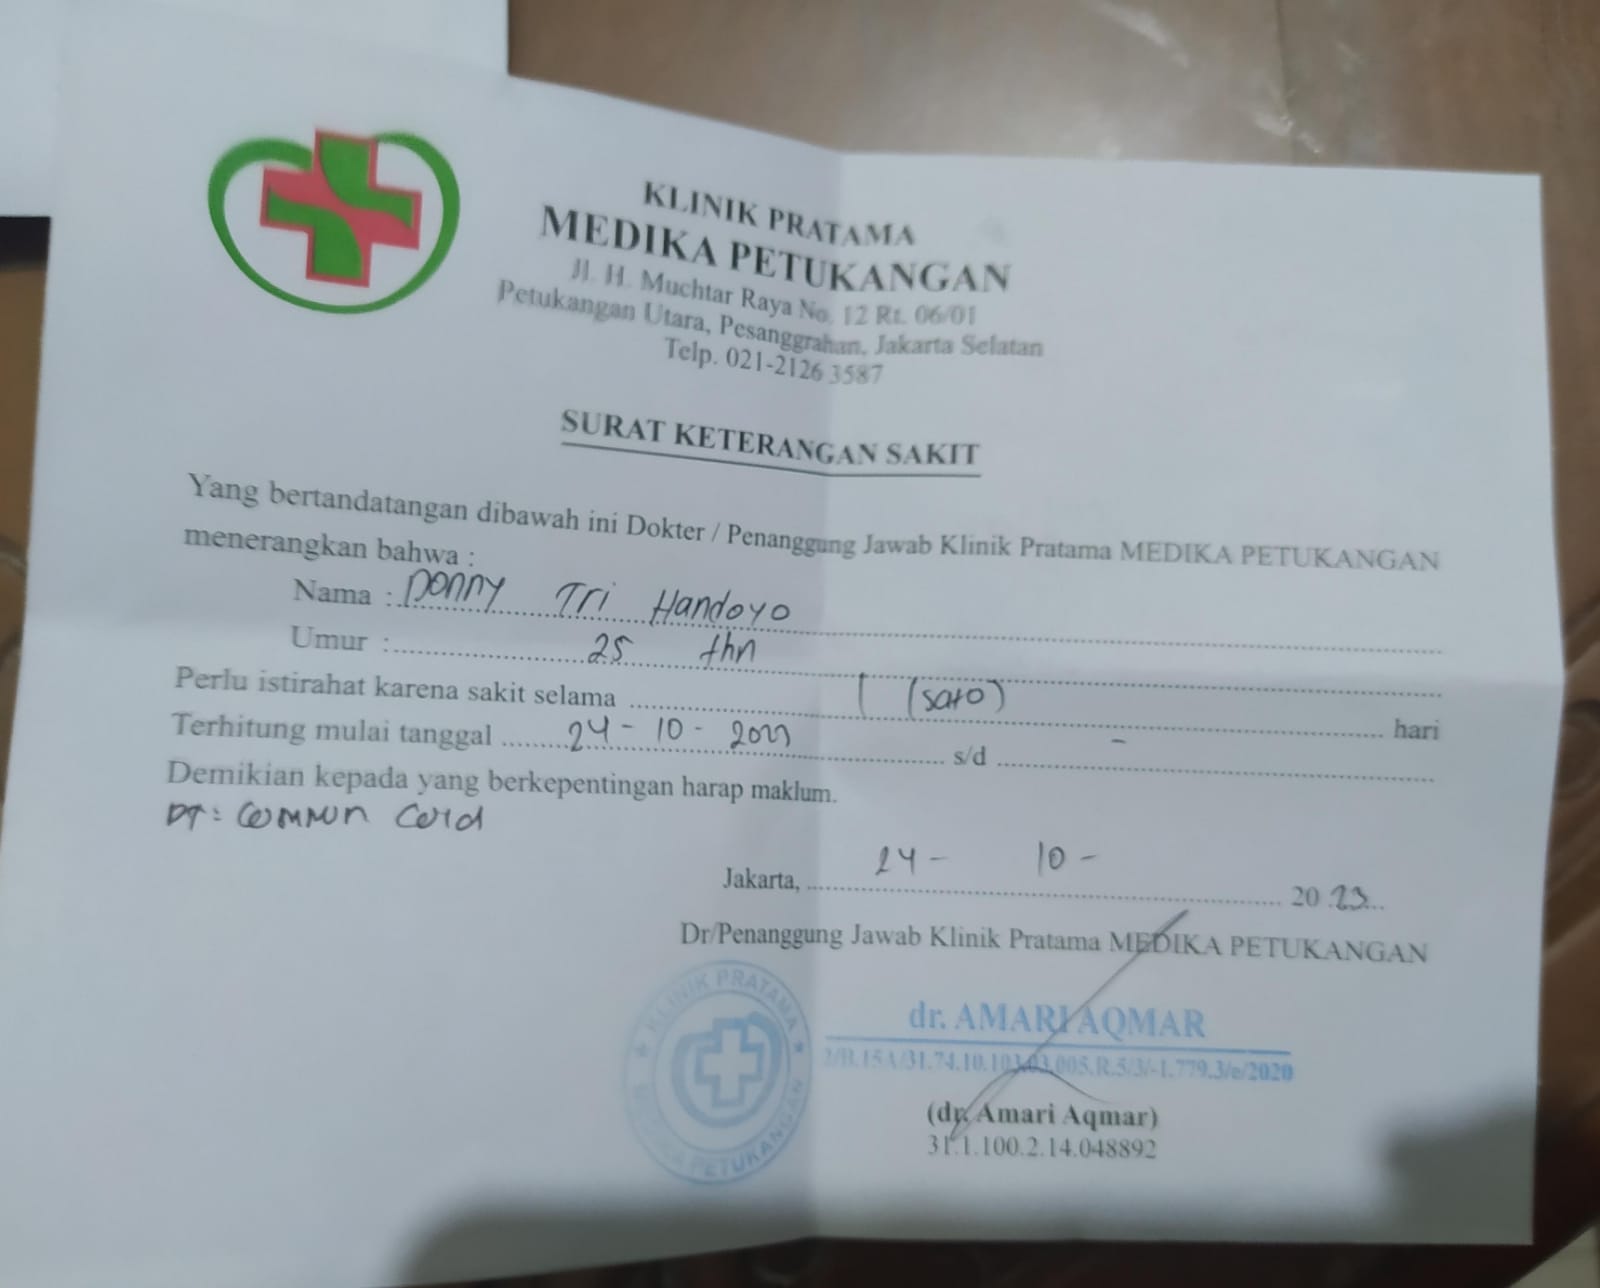 KLINIK PRATAMA
MEDIKA PETUKANGAN
Jl. H. Muchtar Raya No. 12 Rt. 06/01
Petukangan Utara, Pesanggrahan, Jakarta Selatan
Telp. 021-2126 3587
SURAT KETERANGAN SAKIT
Yang bertandatangan dibawah ini Dokter / Penanggung Jawab Klinik Pratama MEDIKA PETUKANGAN
menerangkan bahwa :
Nama : Donny Tri Handoyo
Umur : 25 thn
Perlu istirahat karena sakit selama 1 (satu) hari
Terhitung mulai tanggal 24-10-2023 s/d -
Demikian kepada yang berkepentingan harap maklum.
Common Cold
Jakarta, 24 - 10 - 2023
Dr/Penanggung Jawab Klinik Pratama MEDIKA PETUKANGAN
KLINIK PRATAMA
MEDIKA PETUKANGAN
dr. AMARI AQMAR
(dr. Amari Aqmar)
31.1.100.2.14.048892